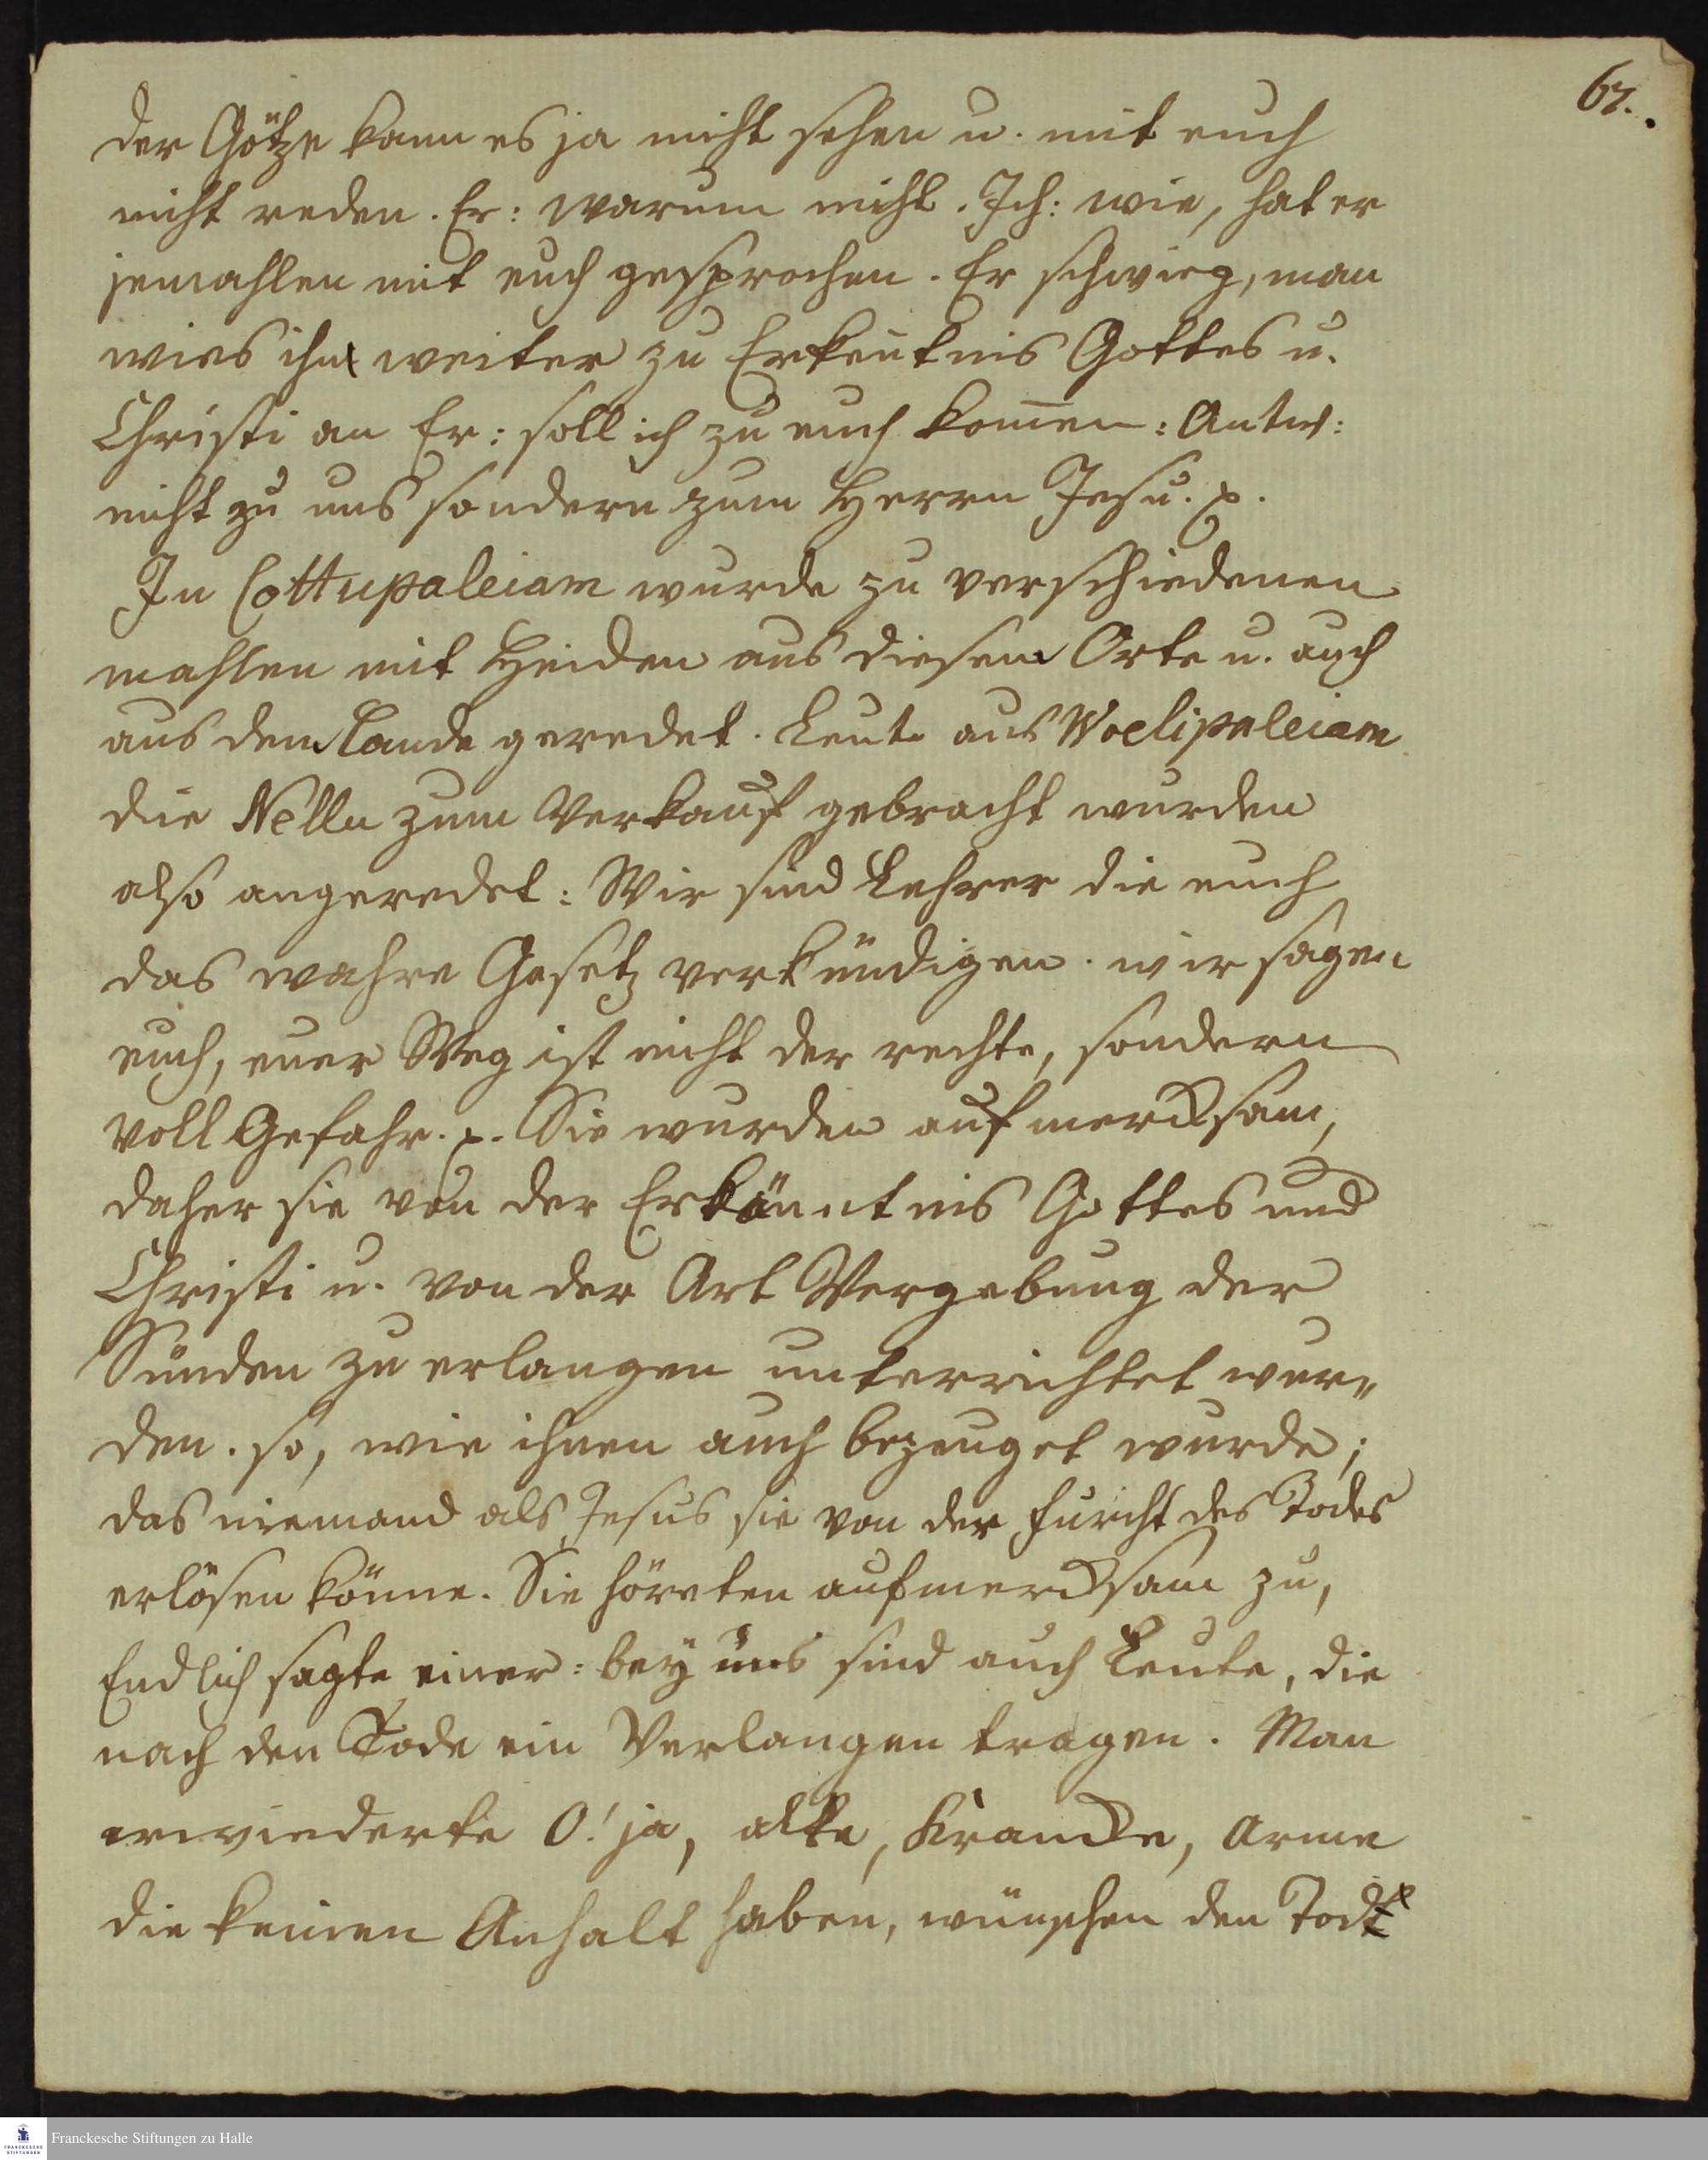 67.
der Götze kann es ja nicht sehen u. mit euch
nicht reden. Er: warum nicht. Ich: wie, hat er
jemahlen mit euch gesprochen. Er schwieg, man
wies ihn weiter zu Erkentnis Gottes u.
Christi an Er: soll ich zu euch kom̅en: Antw:
nicht zu uns sondern zum Herrn Jesu. p.
In Cottupaleiam wurde zu verschiedenen
mahlen mit Heiden aus diesem Orte u. auch
aus dem Lande geredet. Leute aus Woelipaleiam
die Nellu zum Verkauf gebracht wurden
also angeredet: Wir sind Lehrer die euch
das wahre Gesetz verkündigen. wir sagen
euch, euer Weg ist nicht der rechte, sondern
voll Gefahr. p. Sie wurden aufmercksam,
daher sie von der Erkänntnis Gottes und
Christi u. von der Art Vergebung der
Sünden zu erlangen unterrichtet wur„
den. so, wie ihnen auch bezeuget wurde;
das niemand als Jesus sie von der Furcht des Todes
erlösen könne. Sie höreten aufmercksam zu,
Endlich sagte einer: bey uns sind auch Leute, die
nach den Tode ein Verlangen tragen. Man
erwiederte O! ja, alte, Krancke, Arme
die keinen Anhalt haben, wünschen den Todt
Franckesche Stiftungen zu Halle
FRANCKESCHE
STIFTUNGEN